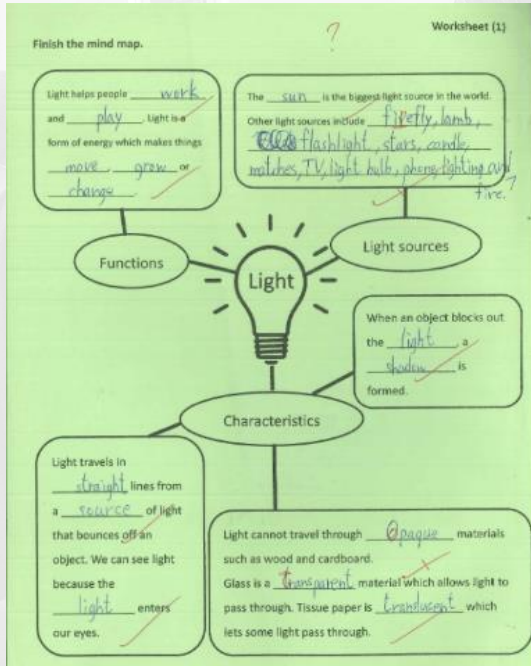 Worksheet (1)
?
Finish the mind map.
Light helps people work
and play. Light is a
form of energy which makes things
move, grow or
change.
The sun is the biggest light source in the world.
Other light sources include firefly, lamb,
flashlight, stars, candle,
matches, TV, light bulb, phone, lighting and
fire.
?
Functions
Light
Light sources
When an object blocks out
the light, a
shadow is
formed.
Characteristics
Light travels in
straight lines from
a source of light
that bounces off an
object. We can see light
because the
light enters
our eyes.
Light cannot travel through Opaque materials
such as wood and cardboard.
Glass is a transparent material which allows light to
pass through. Tissue paper is tranducent which
lets some light pass through.